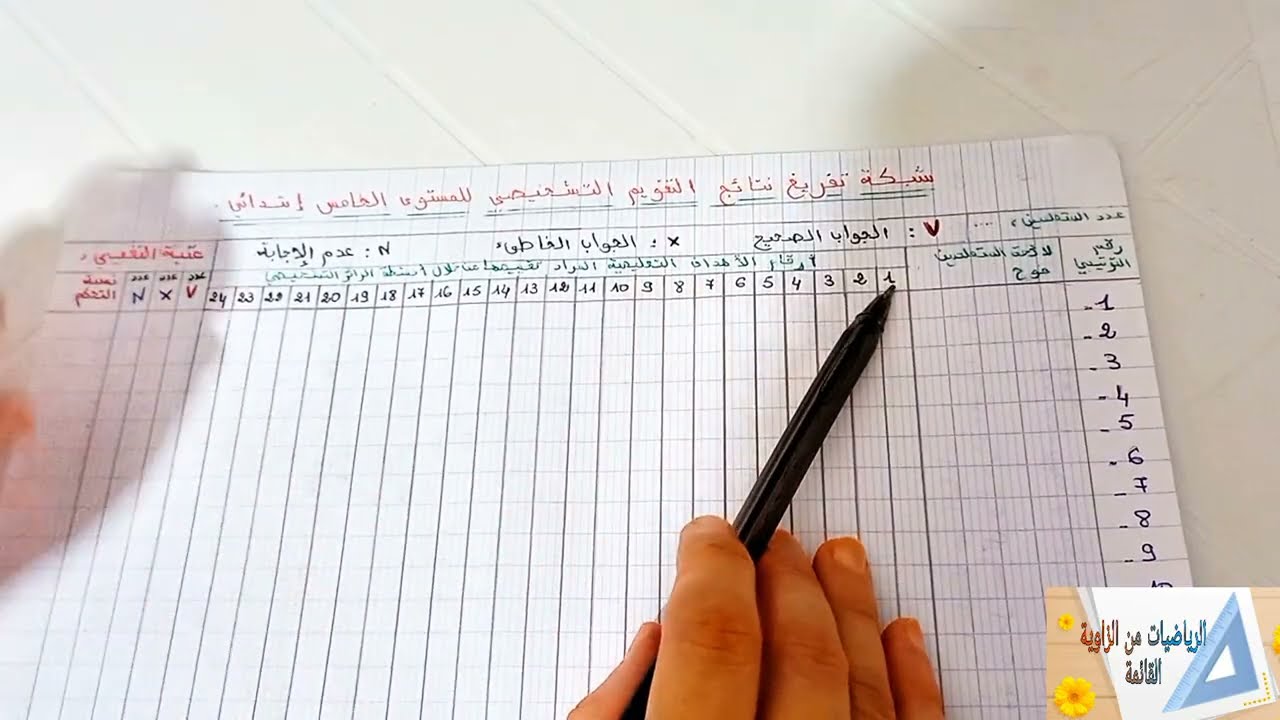 شبكة تفريغ نتائج التقويم التشخيصي للمستوى الخامس إبتدائي.
عدد المتعلمين: ....
V : الجواب الصحيح
x : الجواب الخاطئ
N : عدم الإجابة
عتبة التفييئ:
رقم الترتيبي
لائحة المتعلمين
فوج
أرقام الأهداف التعليمية المراد تقييمها من خلال أسئطة الرائز التشخيصي
1 2 3 4 5 6 7 8 9 10 11 12 13 14 15 16 17 18 19 20 21 22 23 24
عدد V
عدد X
عدد N
نسبة التحكم
1-
2-
3-
4-
5-
6-
7-
8-
9-
الرياضيات من الزاوية
القائمة